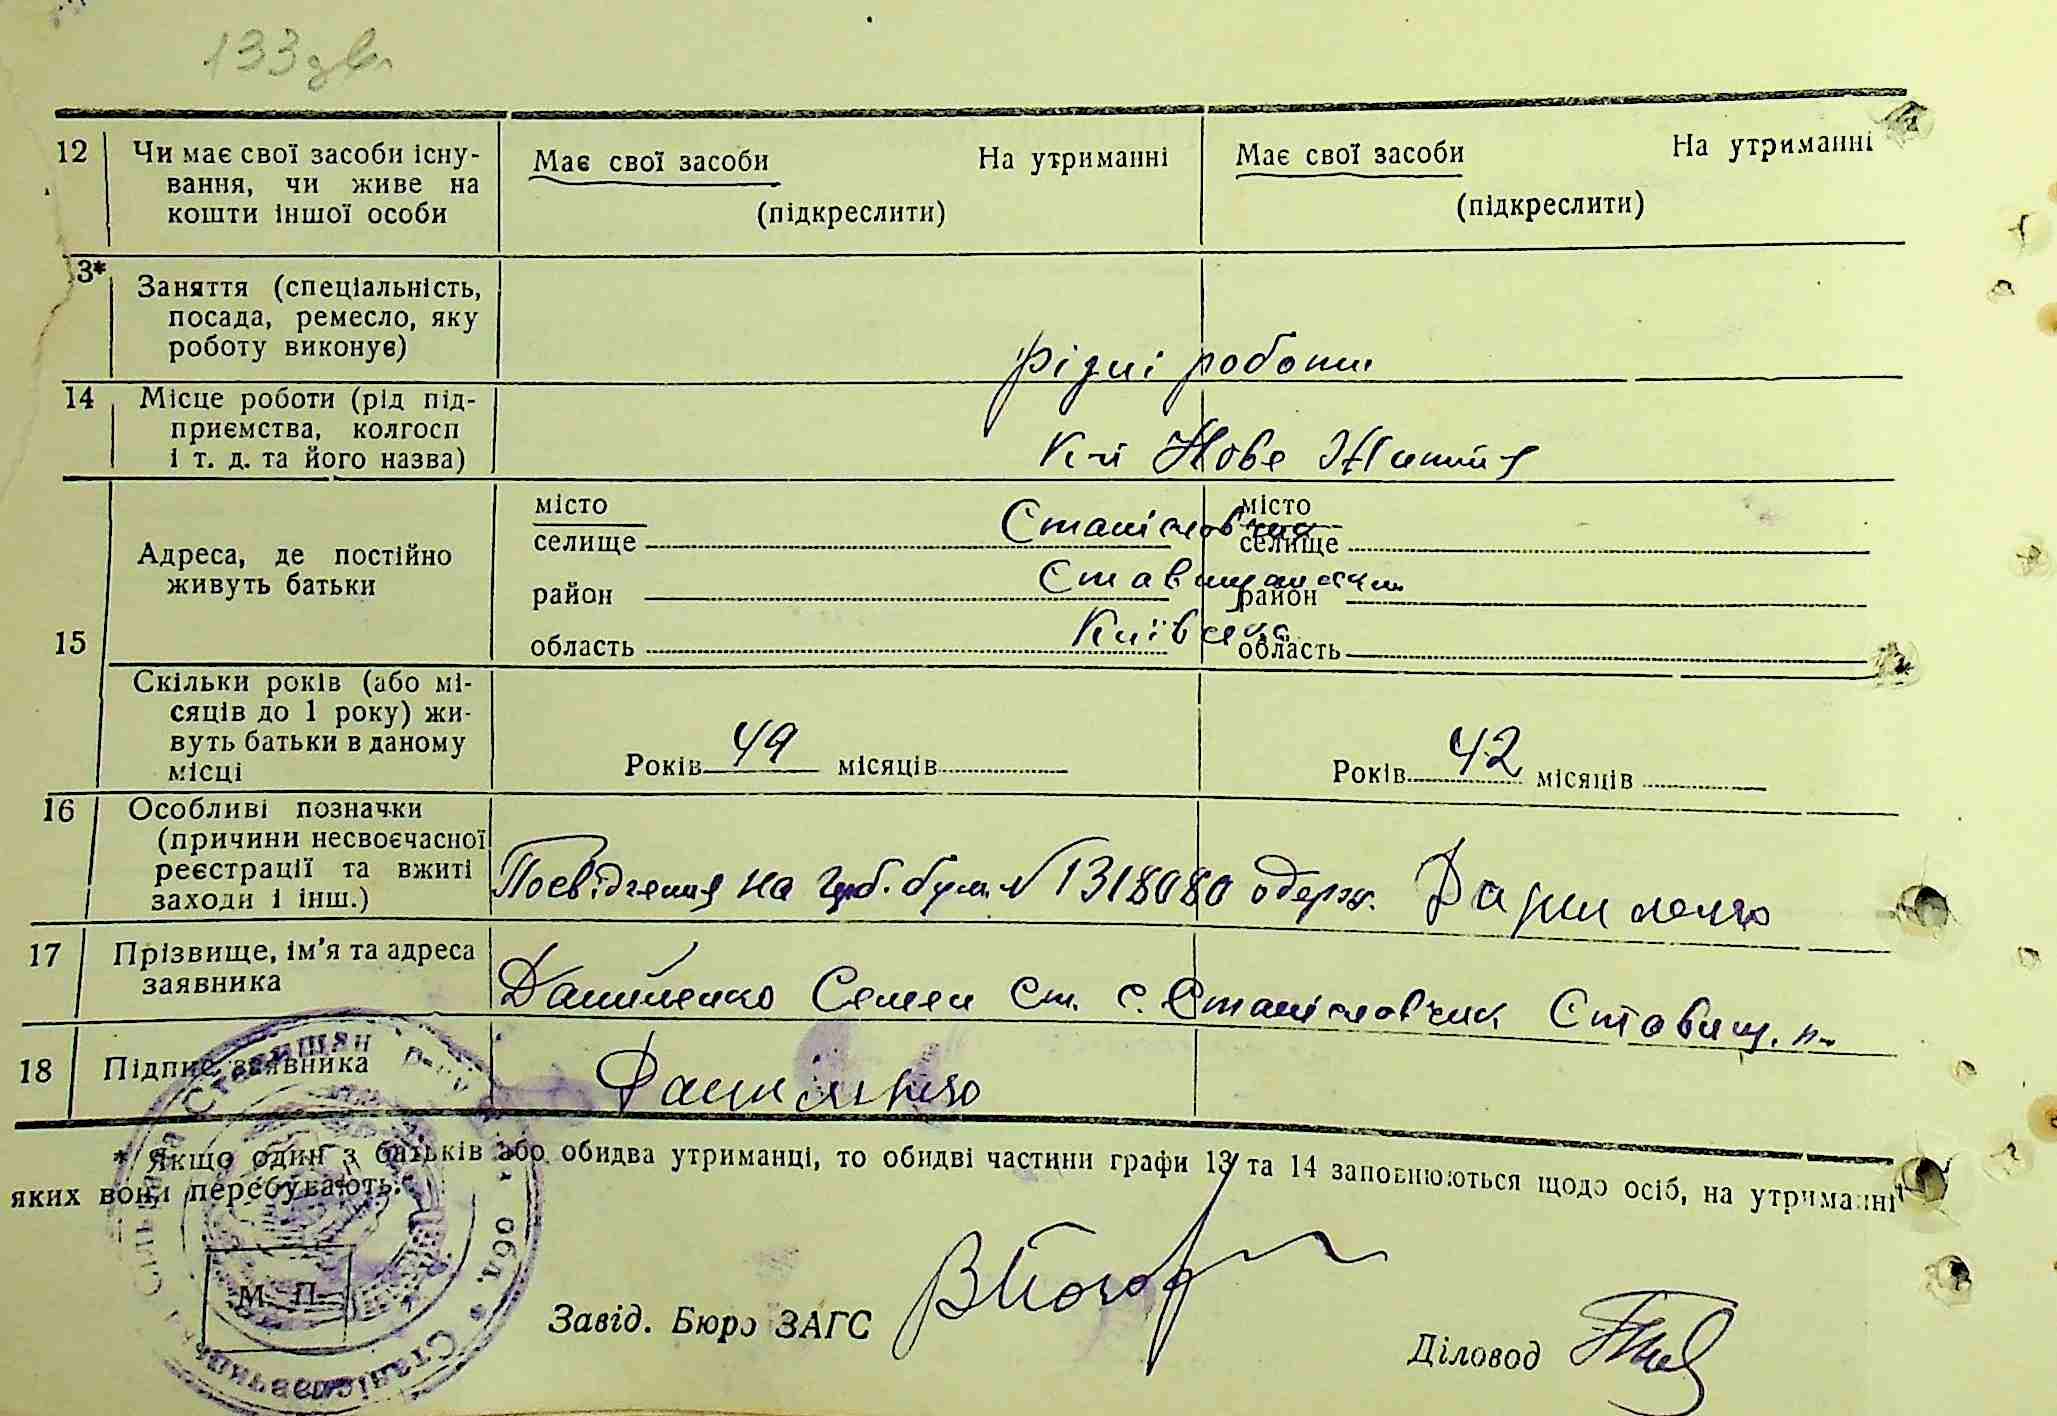 133 зв.
12 Чи має свої засоби існу-
вання, чи живе на
кошти іншої особи
Має свої засоби На утриманні
(підкреслити)
Має свої засоби На утриманні
(підкреслити)
3* Заняття (спеціальність,
посада, ремесло, яку
роботу виконує)
різні роботи
14 Місце роботи (рід під-
приємства, колгосп
і т. д. та його назва)
К-п Нове Життя
15 Адреса, де постійно
живуть батьки
місто
селище
район
область
Станіславчик
Ставищанськ.
Київська
місто
селище
район
область
Скільки років (або мі-
сяців до 1 року) жи-
вуть батьки в даному
місці
Років 49 місяців
Років 42 місяців
16 Особливі позначки
(причини несвоєчасної
реєстрації та вжиті
заходи і інш.)
Посвідчення на герб. бум. № 1318080 одерж.
17 Прізвище, ім'я та адреса
заявника
Даниленко Семен Ст. с. Станіславчик Ставищ. р-н
18 Підпис заявника
Даниленко
* Якщо один з батьків або обидва утриманці, то обидві частини графи 13 та 14 заповнюються щодо осіб, на утриманні
яких вони перебувають.
М. П.
Завід. Бюро ЗАГС
Діловод